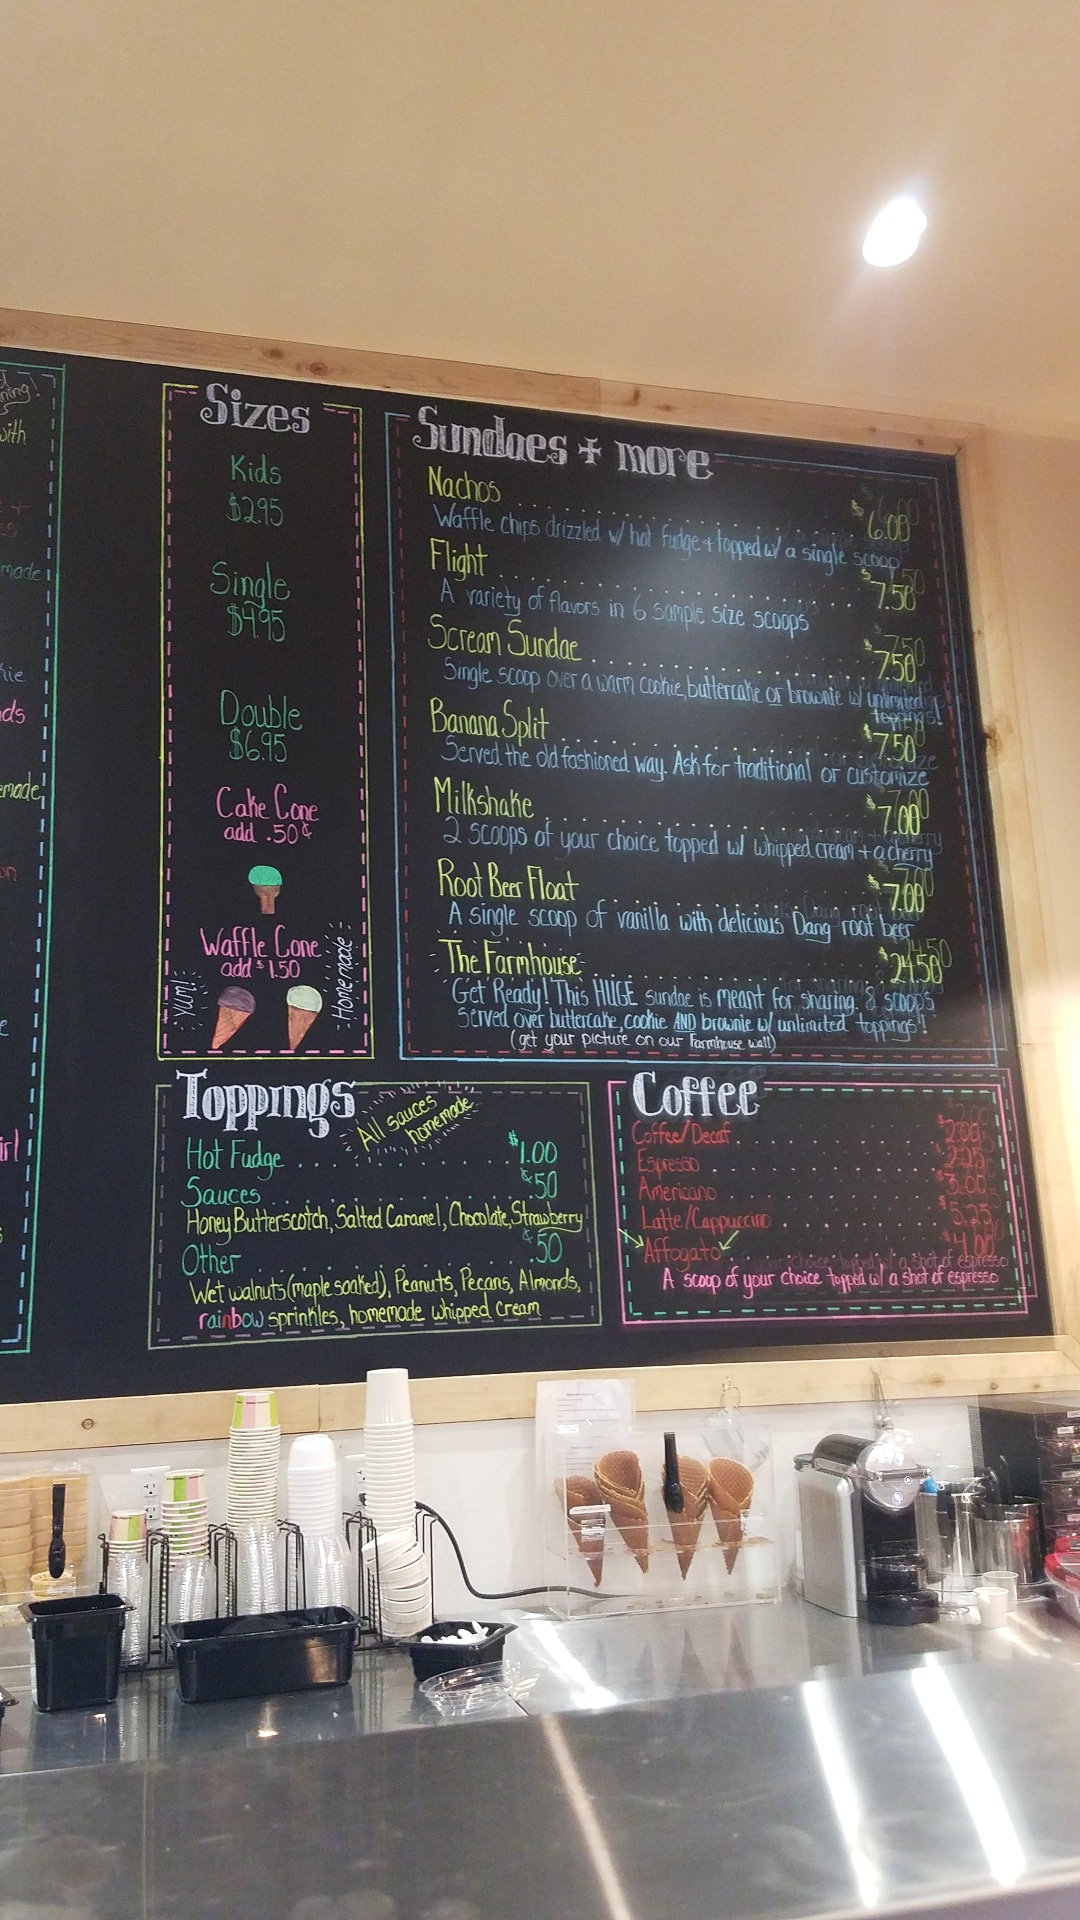 with
made
kie
made
Sizes
Kids
$2.95
Single
$4.95
Double
$6.95
Cake Cone
add .50¢
Waffle Cone
add $1.50
Yum!
Homemade
Sundaes + more
Nachos $6.00
Waffle chips drizzled w/ hot fudge + topped w/ a single scoop
Flight $7.50
A variety of flavors in 6 sample size scoops
Scream Sundae $7.50
Single scoop over a warm cookie, buttercake or brownie w/ unlimited
toppings!
Banana Split $7.50
Served the old fashioned way. Ask for traditional or customize
Milkshake $7.00
2 scoops of your choice topped w/ whipped cream + a cherry
Root Beer Float $7.00
A single scoop of vanilla with delicious Dang root beer
The Farmhouse $24.50
Get Ready! This HUGE sundae is meant for sharing. 8 scoops
served over buttercake, cookie AND brownie w/ unlimited toppings!
(get your picture on our Farmhouse wall)
Toppings
All sauces
homemade
Hot Fudge $1.00
Sauces ¢50
Honey Butterscotch, Salted Caramel, Chocolate, Strawberry
Other ¢50
Wet walnuts (maple soaked), Peanuts, Pecans, Almonds,
rainbow sprinkles, homemade whipped cream
Coffee
Coffee/Decaf $2.00
Espresso $2.25
Americano $3.00
Latte/Cappuccino $5.25
Affogato $4.00
A scoop of your choice topped w/ a shot of espresso